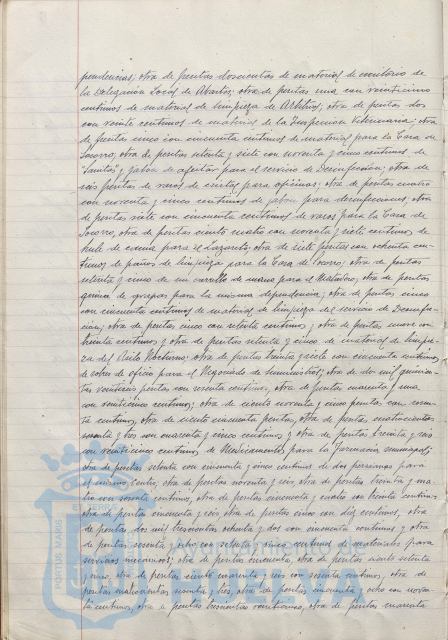 pendencias; otra de pesetas doscientas de material de escritorio de
la Delegación Local de Abastos; otra de pesetas una con veinticinco
centimos de material de limpieza de Arbitrios; otra de pesetas dos
con veinte centimos de material de la Inspeccion Veterinaria; otra
de pesetas cinco con cincuenta centimos de material para la Casa de
Socorro; otra de pesetas setenta y siete con noventa y cinco centimos de
"Sanitas" y jabon de afeitar para el servicio de Desinfeccion; otra de
seis pesetas de vasos de cristal para oficinas; otra de pesetas cuatro
con noventa y cinco centimos de jabon para desinfecciones; otra
de pesetas siete con cincuenta centimos de vasos para la Casa de
Socorro; otra de pesetas ciento cuatro con noventa y siete centimos de
hule de cama para el Lazareto; otra de siete pesetas con ochenta cen-
timos de paños de limpieza para la Casa de Socorro; otra de pesetas
setenta y cinco de un carrillo de mano para el Matadero; otra de pesetas
quince de grapas para la misma dependencia; otra de pesetas cinco
con cincuenta centimos de material de limpieza del servicio de Desinfec-
cion; otra de pesetas cinco con setenta centimos y otra de pesetas nueve con
treinta centimos y otra de pesetas setenta y cinco de material de limpie-
za del Asilo Nocturno; otra de pesetas treinta y siete con cincuenta centimos
de sobres de oficio para el Negociado de Suministros; otra de dos mil quinien-
tas veintiseis pesetas con sesenta centimos, otra de pesetas cuarenta y una
con veinticinco centimos; otra de ciento noventa y cinco pesetas con cuaren-
ta centimos, otra de ciento cincuenta pesetas, otra de pesetas cuatrocientas
noventa y tres con cuarenta y cinco centimos y otra de pesetas treinta y seis
con veinticinco centimos de Medicamentos para la farmacia municipal;
otra de pesetas setenta con cincuenta y cinco centimos de dos persianas para
el mismo Centro, otra de pesetas noventa y seis, otra de pesetas treinta y cua-
tro con sesenta centimos, otra de pesetas cincuenta y cuatro con treinta centimos
otra de pesetas cincuenta y seis, otra de pesetas cinco con diez centimos, otra
de pesetas dos mil trescientas ochenta y dos con cincuenta centimos y otra
de pesetas sesenta y ocho con setenta y cinco centimos de materiales para
servicios mecanicos; otra de pesetas cincuenta, otra de pesetas ciento setenta
y cinco, otra de pesetas ciento cuarenta y seis con sesenta centimos, otra de
pesetas cuatrocientas sesenta y tres, otra de pesetas cincuenta y ocho con noven-
ta centimos, otra de pesetas trescientas veinticinco, otra de pesetas cuarenta
PORTUS MARIS
Ayuntamiento de